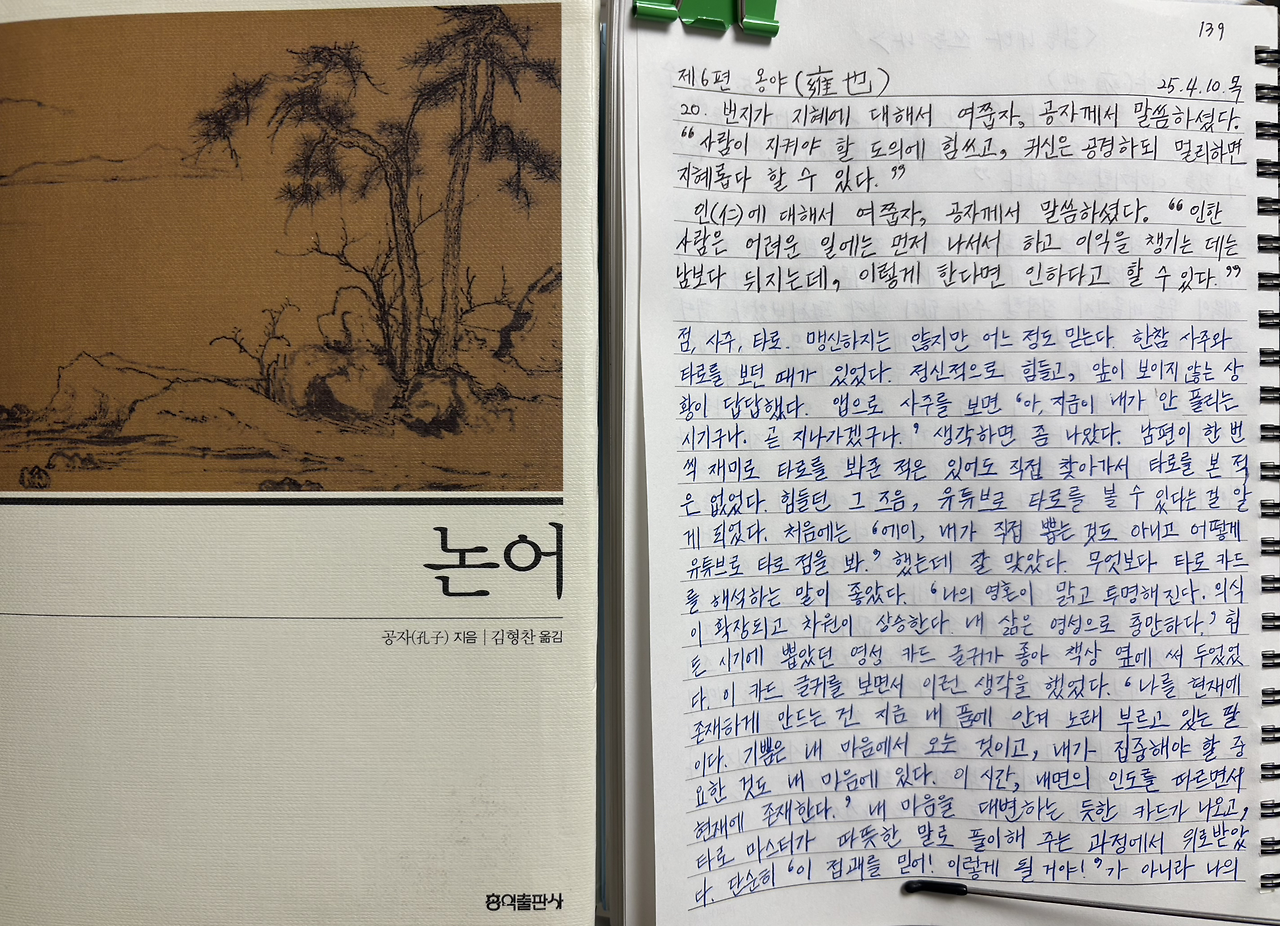 논어
공자(孔子) 지음 | 김형찬 옮김
홍익출판사
139
제6편 옹야(雍也) 25.4.10.목
20. 번지가 지혜에 대해서 여쭙자, 공자께서 말씀하셨다.
“사람이 지켜야 할 도의에 힘쓰고, 귀신은 공경하되 멀리하면
지혜롭다 할 수 있다.”
인(仁)에 대해서 여쭙자, 공자께서 말씀하셨다. “인한
사람은 어려운 일에는 먼저 나서서 하고 이익을 챙기는 데는
남보다 뒤지는데, 이렇게 한다면 인하다고 할 수 있다.”
점, 사주, 타로. 맹신하지는 않지만 어느 정도 믿는다. 한참 사주와
타로를 보던 때가 있었다. 정신적으로 힘들고, 앞이 보이지 않는 상
황이 답답했다. 앱으로 사주를 보면 ‘아, 지금이 내가 안 풀리는
시기구나. 곧 지나가겠구나.’ 생각하면 좀 나았다. 남편이 한 번
씩 재미로 타로를 봐준 적은 있어도 직접 찾아가서 타로를 본 적
은 없었다. 힘들던 그 즈음, 유튜브로 타로를 볼 수 있다는 걸 알
게 되었다. 처음에는 ‘에이, 내가 직접 뽑는 것도 아니고 어떻게
유튜브로 타로 점을 봐.’ 했는데 잘 맞았다. 무엇보다 타로 카드
를 해석하는 말이 좋았다. ‘나의 영혼이 맑고 투명해진다. 의식
이 확장되고 차원이 상승한다. 내 삶은 영성으로 충만하다.’ 힘
든 시기에 뽑았던 영성 카드 글귀가 좋아 책상 옆에 써 두었었
다. 이 카드 글귀를 보면서 이런 생각을 했었다. ‘나를 현재에
존재하게 만드는 건 지금 내 품에 안겨 노래 부르고 있는 딸
이다. 기쁨은 내 마음에서 오는 것이고, 내가 집중해야 할 중
요한 것도 내 마음에 있다. 이 시간, 내면의 인도를 따르면서
현재에 존재한다.’ 내 마음을 대변하는 듯한 카드가 나오고,
타로 마스터가 따뜻한 말로 풀이해 주는 과정에서 위로받았
다. 단순히 ‘이 점괘를 믿어! 이렇게 될 거야!’가 아니라 나의